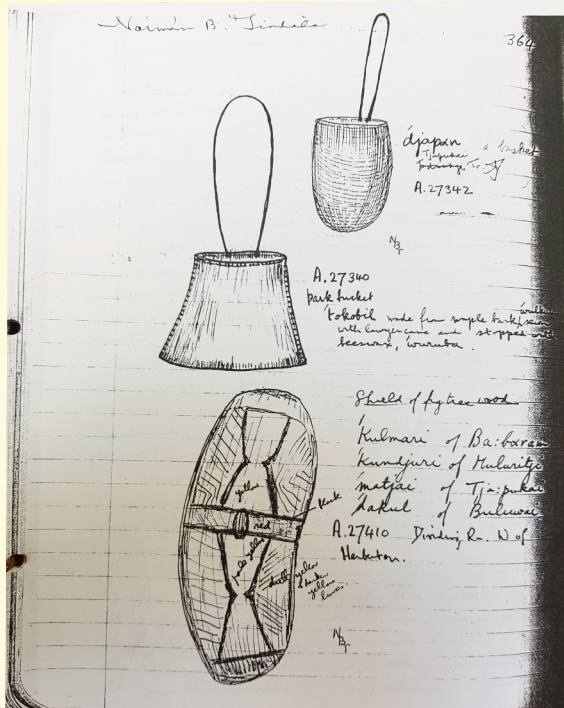 Norman B. Tindale
364
djapan a basket
Tjapukai Tr.
A.27342
N.B.T
A.27340
bark bucket
tokobil made from maple bark, sewn
with lawyer cane and stopped with
beeswax, wuruba.
Shield of fig tree wood
Kulmari of Ba:baram
Kundjuri of Muluritji
matjai of Tja:pukai
dakul of Buluwai
A.27410 Dividing R. W of
Herberton.
yellow
black
red
pale yellow
dull yellow
& darker
yellow
lines
N.B.T